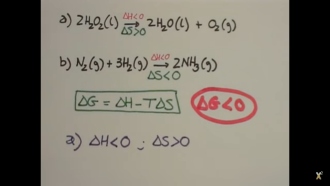 a) 2H₂O₂(l) →(ΔH<0, ΔS>0) 2H₂O(l) + O₂(g)
b) N₂(g) + 3H₂(g) →(ΔH<0, ΔS<0) 2NH₃(g)
ΔG = ΔH - TΔS ΔG<0
a) ΔH<0 ; ΔS>0